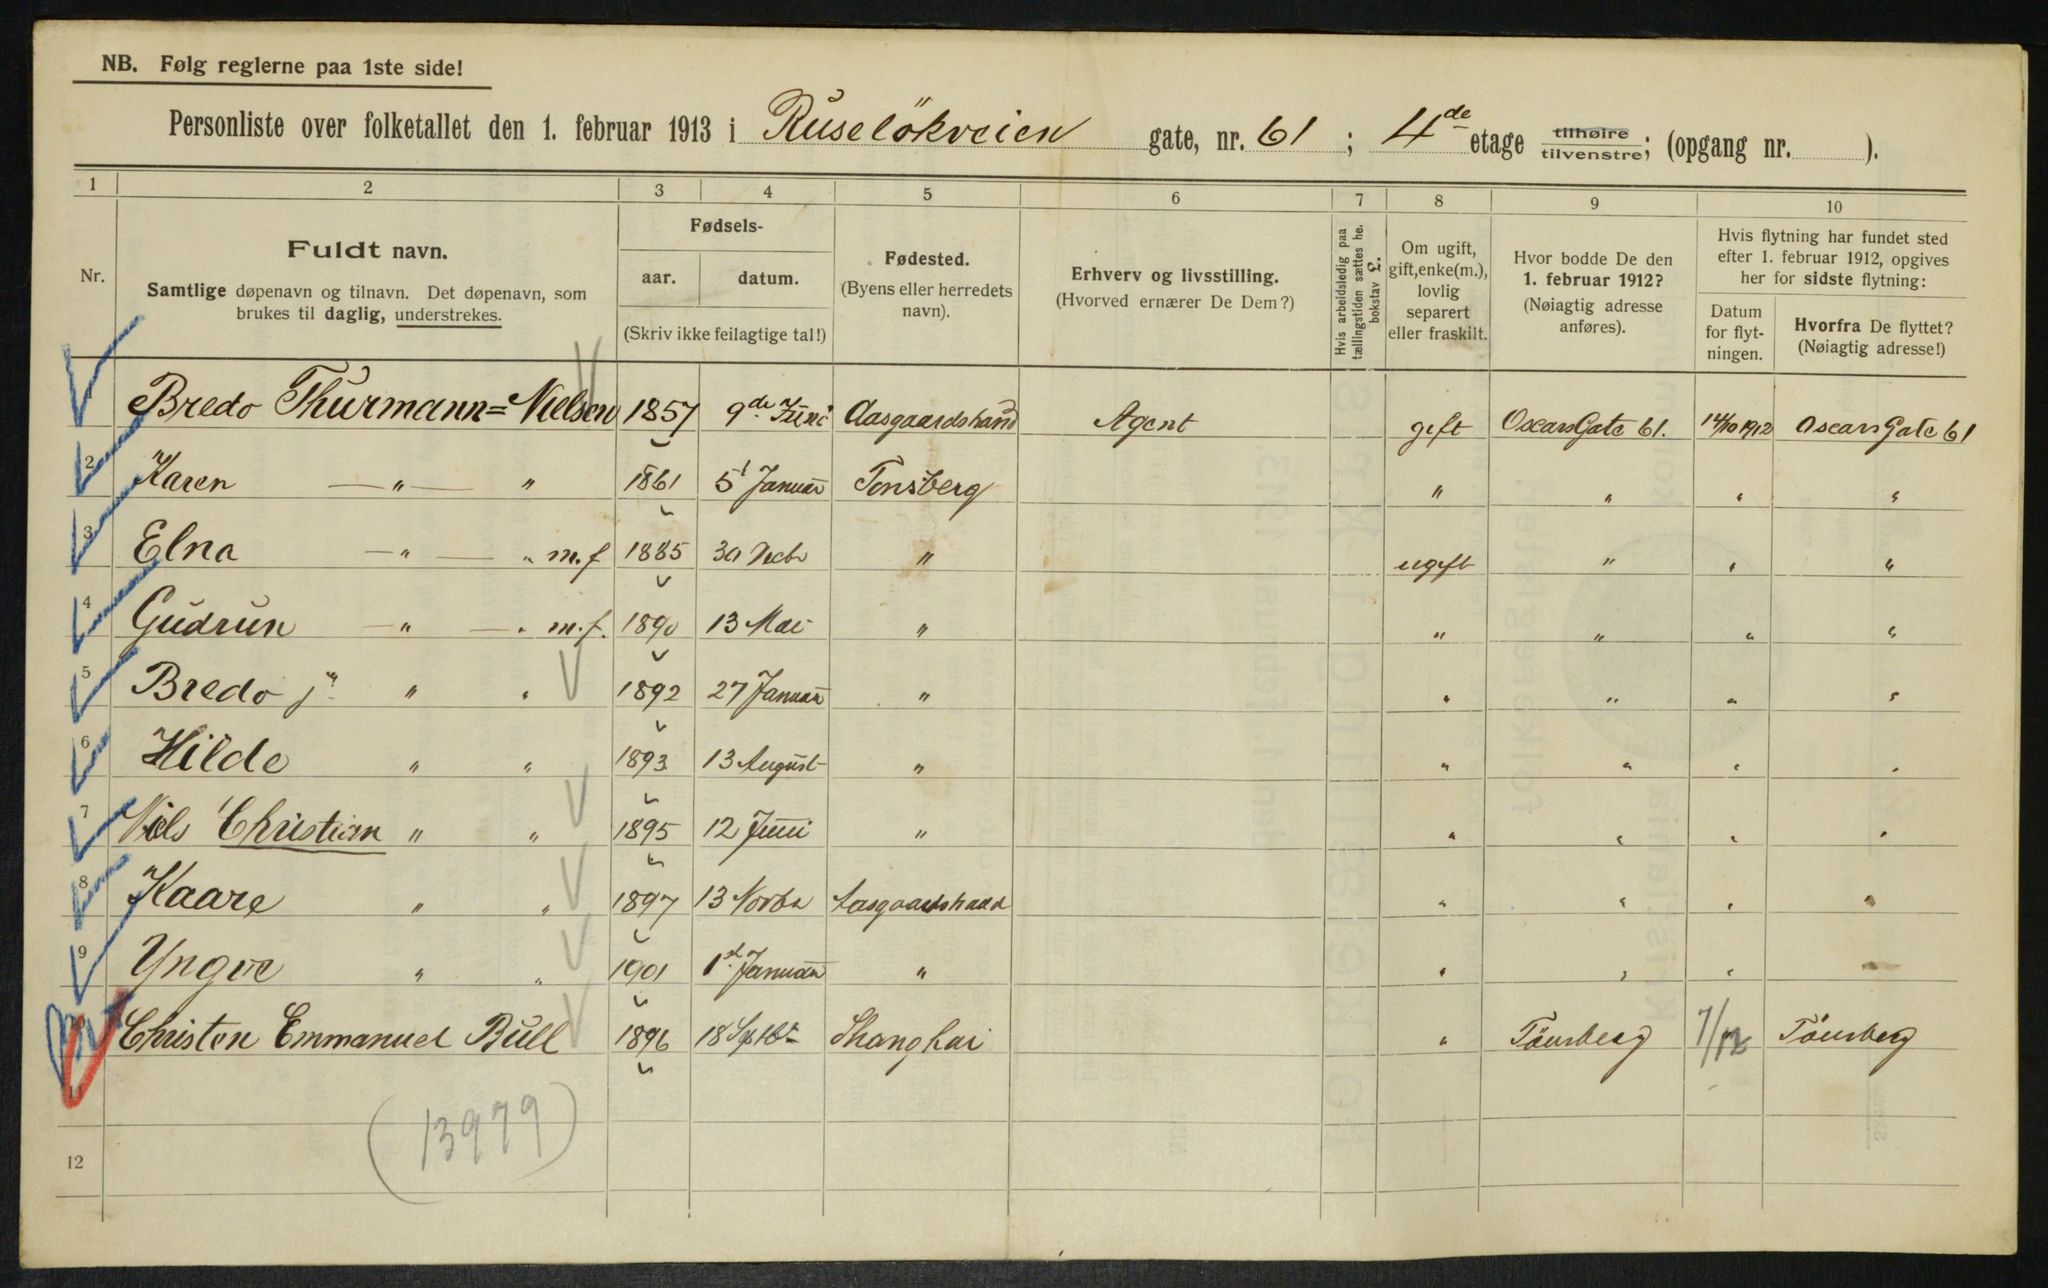 NB. Følg reglerne paa 1ste side!
Personliste over folketallet den 1. februar 1913 i Ruseløkveien gate, nr. 61 ; 4de etage tilhøire tilvenstre; (opgang nr. ).
1 2 3 4 5 6 7 8 9 10
Nr.
Fuldt navn.
Samtlige døpenavn og tilnavn. Det døpenavn, som
brukes til daglig, understrekes.
Fødsels-
aar. datum.
(Skriv ikke feilagtige tal!)
Fødested.
(Byens eller herredets
navn).
Erhverv og livsstilling.
(Hvorved ernærer De Dem?)
Hvis arbeidsledig paa
tællingstiden sættes he.
bokstav L.
Om ugift,
gift, enke(m.),
lovlig
separert
eller fraskilt.
Hvor bodde De den
1. februar 1912?
(Nøiagtig adresse
anføres).
Hvis flytning har fundet sted
efter 1. februar 1912, opgives
her for sidste flytning:
Datum
for flyt-
ningen.
Hvorfra De flyttet?
(Nøiagtig adresse!)
Bredo Thurmann=Nielsen 1857 9de Juni Aasgaardstrand Agent gift Oscars Gate 61. 14/10 1912 Oscars Gate 61
2 Karen — " — " 1861 5 Januar Tønsberg " " " "
3 Elna — " — " m.f 1885 " ugift " " "
4 Gudrun — " — " m.f. 1890 13 Mai " " " " "
5 Bredo jr " " 1892 27 Januar " " " " "
6 Hilde " " 1893 13 August " " " " "
7 Niels Christian " " 1895 12 Juni " " " " "
8 Kaare " " 1897 13 Novbr Aasgaardstrand " " " "
9 Yngve " " 1901 1st Januar " " " "
10 Christen Emmanuel Bull 1896 18 Septbr Shanghai " Tönsberg 7/12 Tönsberg
11
(13979)
12